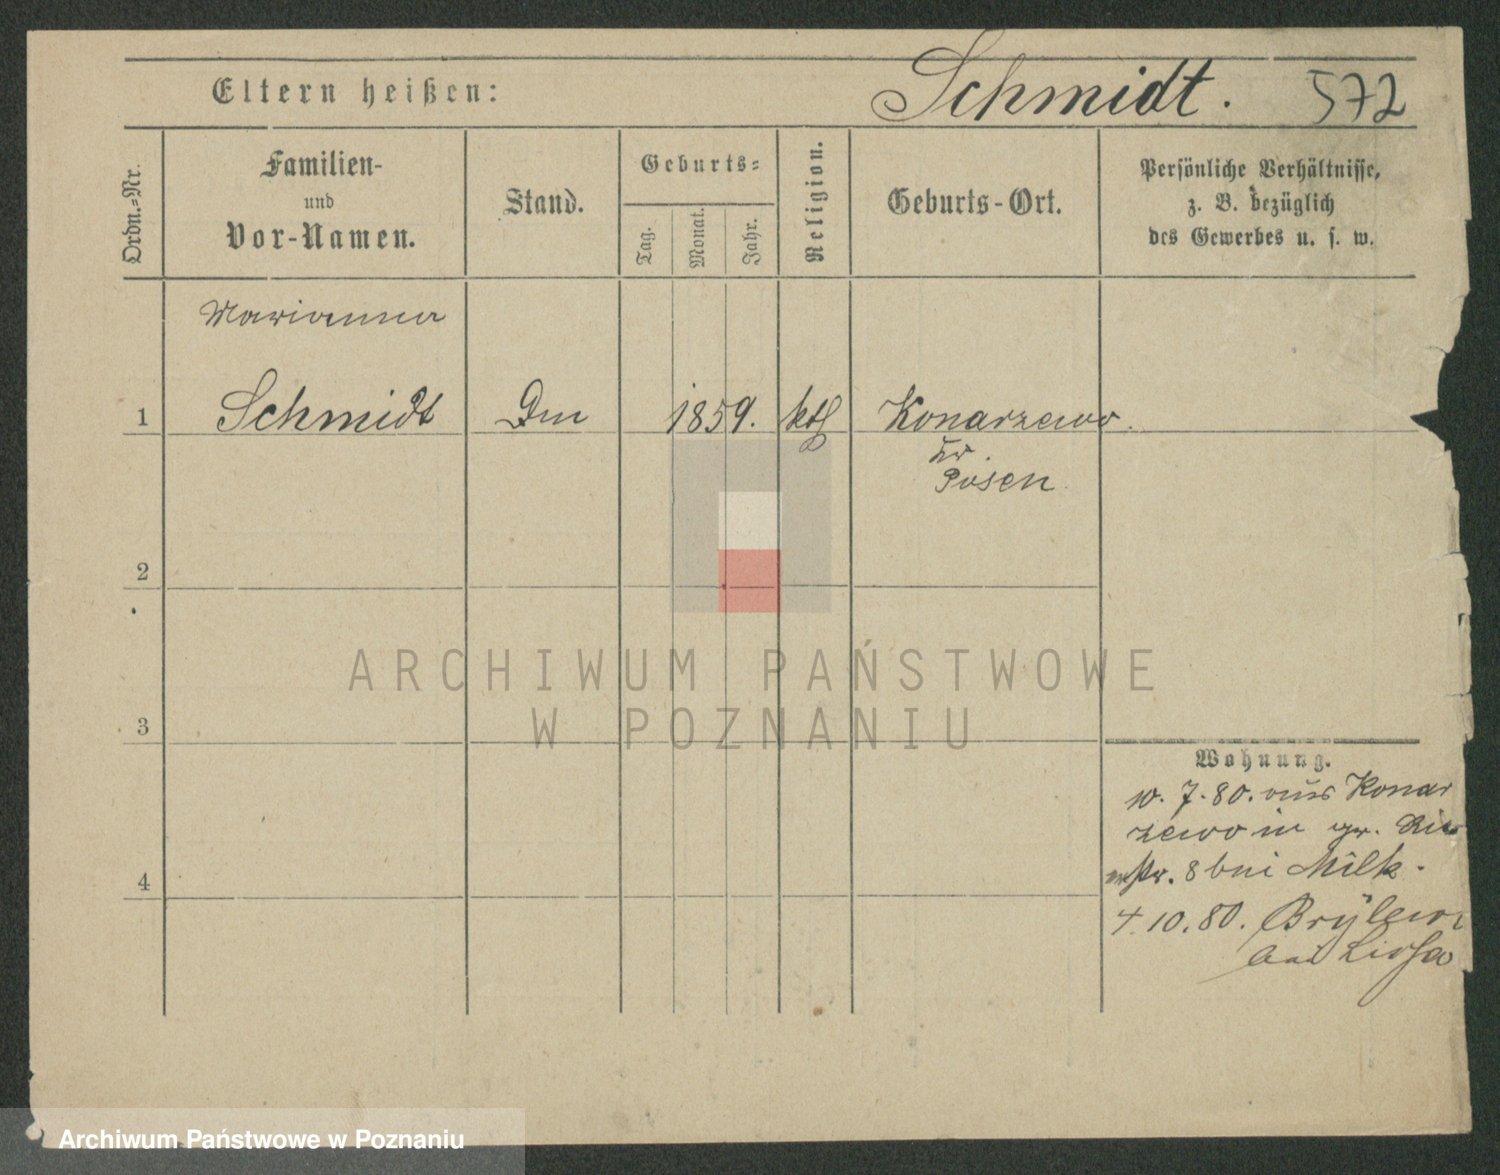 Eltern heißen: Schmidt. 572
Ordn.-Nr.
Familien-
und
Vor-Namen.
Stand.
Geburts-
Tag.
Monat.
Jahr.
Religion.
Geburts-Ort.
Persönliche Verhältnisse,
z. B. bezüglich
des Gewerbes u. s. w.
Marianna
1 Schmidt 1859. kth Konarzewo.
Kr.
Posen
2
3
4
Wohnung.
10. 7. 80. aus Konar
zewo in gr.
str. 8 bei Milk.
4. 10. 80.
bei Lissa
ARCHIWUM PAŃSTWOWE
W POZNANIU
Archiwum Państwowe w Poznaniu